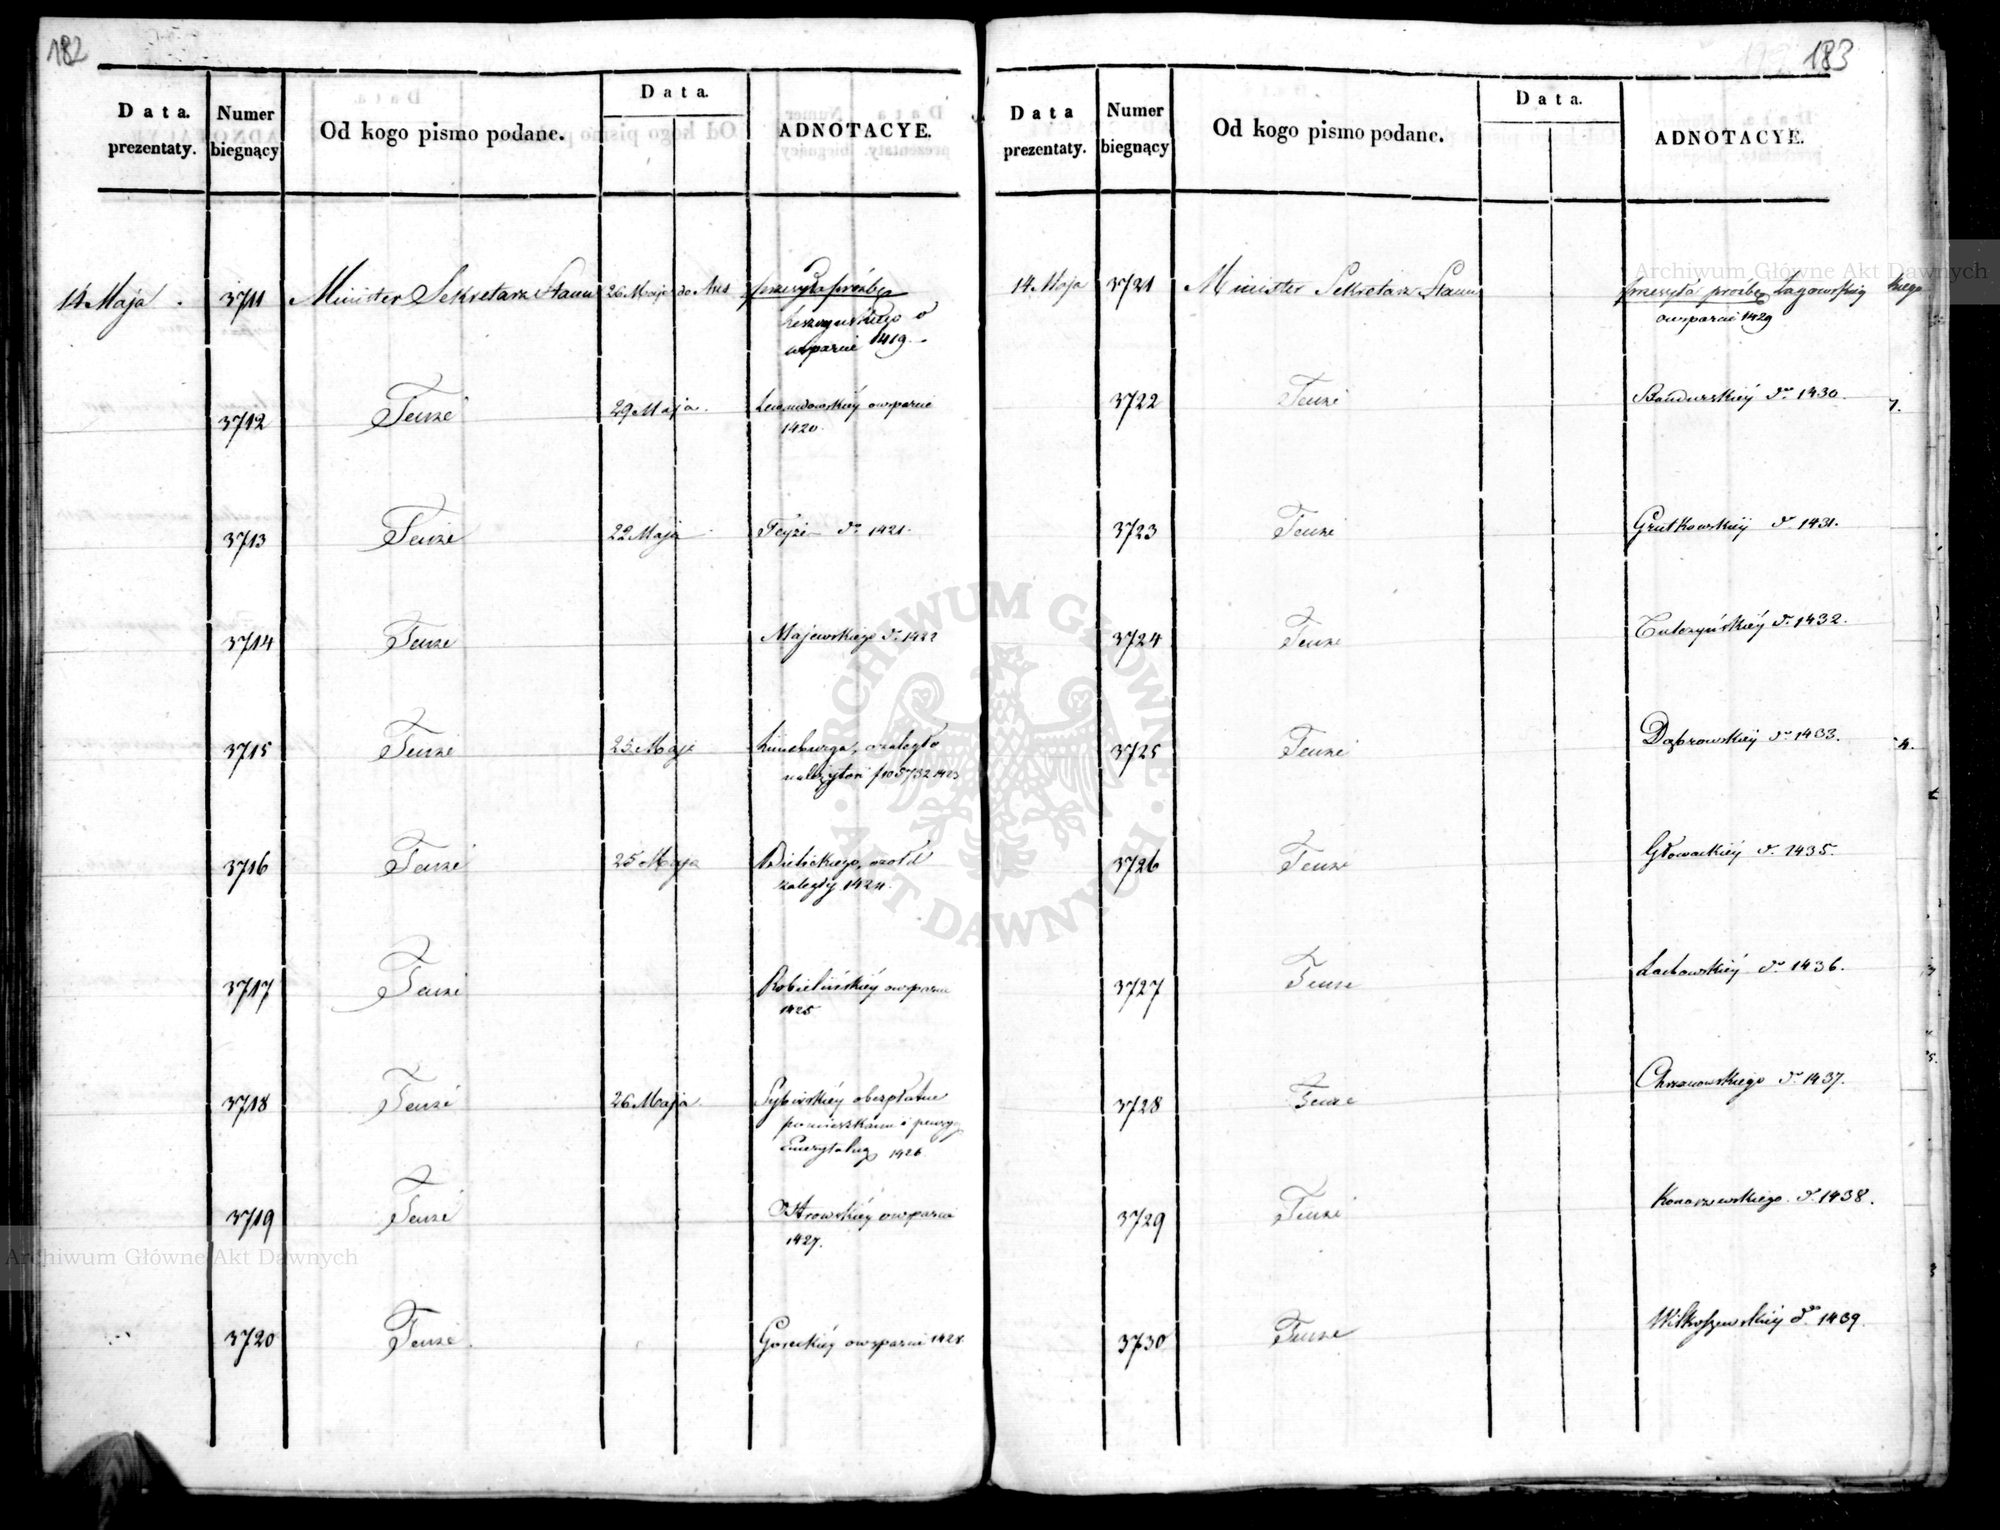 182
Data. prezentaty.
Numer biegnący
Od kogo pismo podane.
Data.
ADNOTACYE.
14 Maja 3711 Minister Sekretarz Stanu 26 Maja przesyła prośbę
o
wsparcie 1419.
3712 Tenże 29 Maja. Lewandowskiéy o wsparcie
1420.
3713 Tenże 22 Maja Teyże do 1421.
3714 Tenże Majewskiego do 1422
3715 Tenże 23 Maja Lüneburga, o zaległe
1423
3716 Tenże 25 Maja o żołd
zaległy 1424.
3717 Tenże o wsparcie
1425
3718 Tenże 26 Maja. o bezpłatne
pomieszkanie i pensyę
Emerytalną 1426.
3719 Tenże Ostrowskiéy o wsparcie
1427.
3720 Tenże. Goreckiéy o wsparcie 1428.
183
Data prezentaty.
Numer biegnący
Od kogo pismo podane.
Data.
ADNOTACYE.
14 Maja 3721 Minister Sekretarz Stanu przesyła prośbę Łagowskiéy
o wsparcie 1429
3722 Tenże Bandurskiéy do 1430.
3723 Tenże Grutkowskiéy do 1431.
3724 Tenże do 1432.
3725 Tenże Dąbrowskiéy do 1433.
3726 Tenże Głowackiéy do 1435.
3727 Tenże Lachowskiéy do 1436.
3728 Tenże Chrzanowskiego do 1437.
3729 Tenże Konarzewskiego do 1438.
3730 Tenże do 1439.
Archiwum Główne Akt Dawnych
ARCHIWUM GŁÓWNE AKT DAWNYCH
Archiwum Główne Akt Dawnych